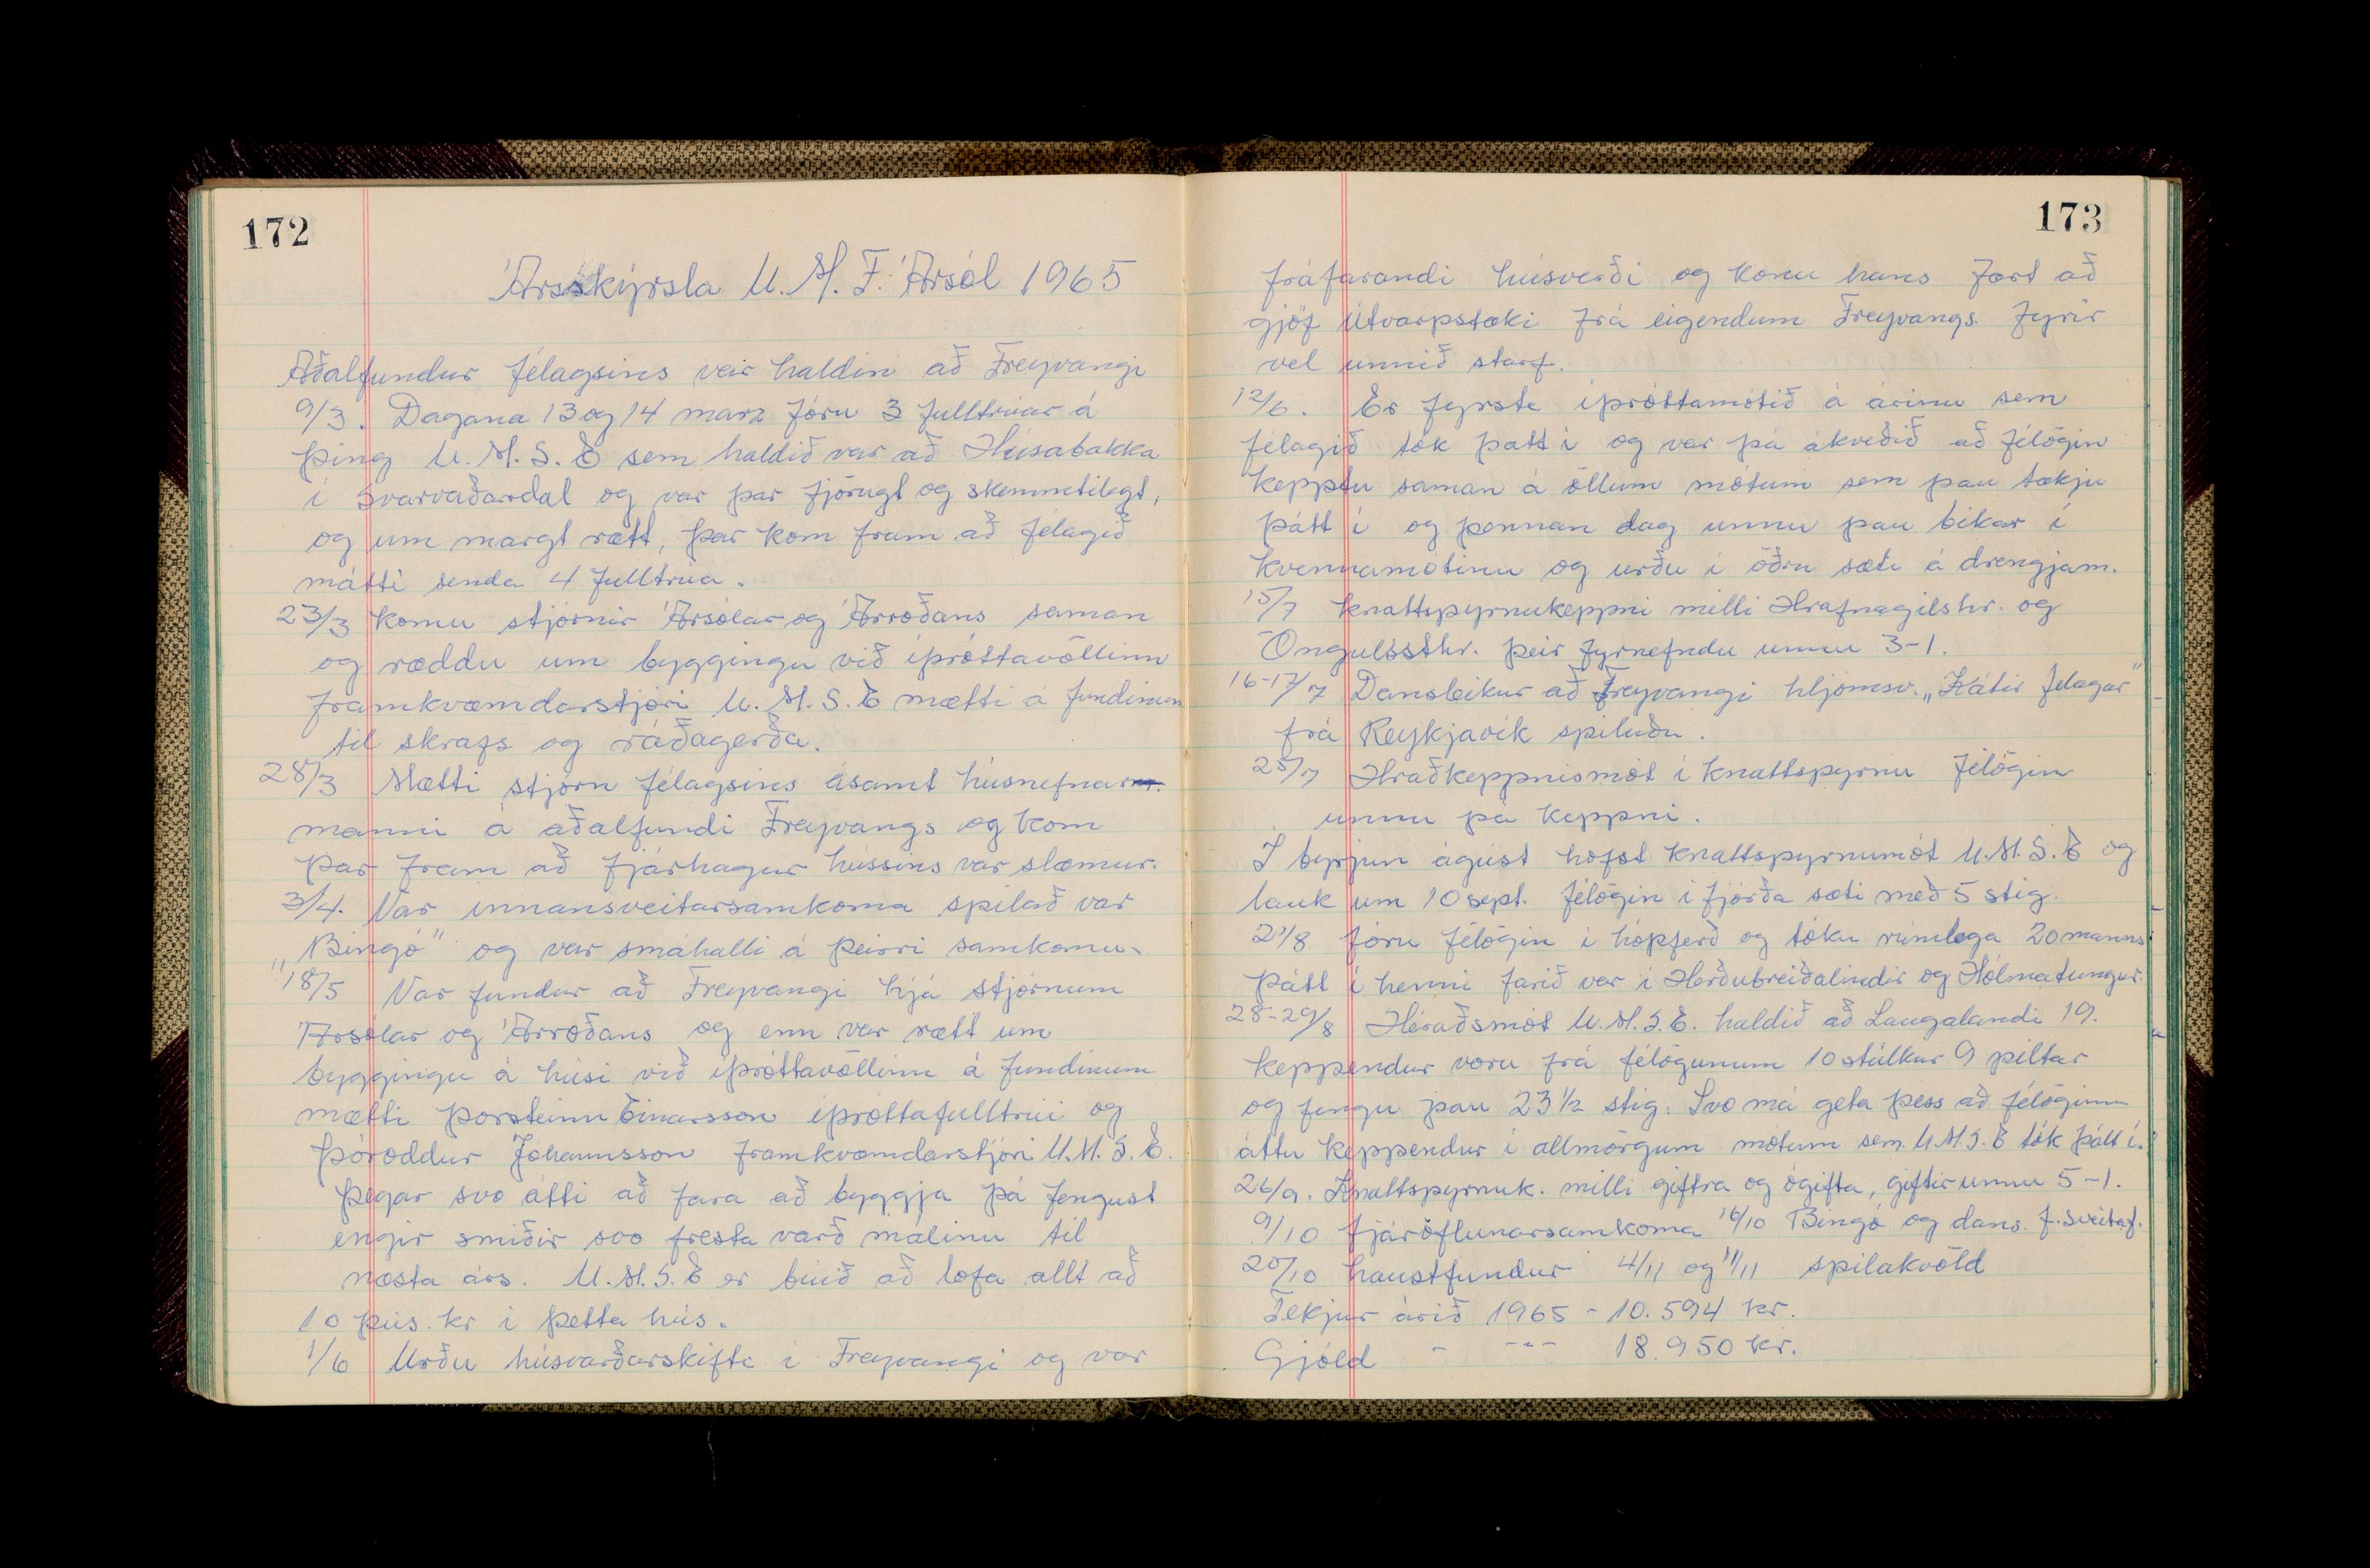 172
Ársskýrsla U.M.F. Ársól 1965
Aðalfundur félagsins var haldin að Freyvangi
9/3. Dagana 13 og 14 marz fóru 3 fulltrúar á
þing U.M.S.E sem haldið var að Húsabakka
í Svarvaðardal og var þar fjörugt og skemmtilegt,
og um margt rætt, þar kom fram að félagið
mátti senda 4 fulltrúa.
23/3 komu stjórnir Ársólar og Árroðans saman
og ræddu um byggingu við íþróttavöllinn
framkvæmdarstjóri U.M.S.E mætti á fundinum
til skrafs og ráðagerða.
28/3 Mætti stjórn félagsins ásamt húsnefnar
manni á aðalfundi Freyvangs og kom
þar fram að fjárhagur hússins var slæmur.
3/4. Var innansveitarsamkoma spilað var
„Bingó" og var smáhalli á þeirri samkomu.
18/5 Var fundur að Freyvangi hjá stjórnum
Ársólar og Árroðans og enn var rætt um
byggingu á húsi við íþróttavöllinn á fundinum
mætti Þorsteinn Einarsson íþróttafulltrúi og
Þóroddur Jóhannsson framkvæmdarstjóri U.M.S.E.
Þegar svo átti að fara að byggja þá fengust
engir smiðir svo fresta varð málinu til
næsta árs. U.M.S.E er búið að lofa allt að
10 þús. kr í þetta hús.
1/6 Urðu húsvarðarskifti í Freyvangi og var
173
fráfarandi húsverði og konu hans fært að
gjöf útvarpstæki frá eigendum Freyvangs fyrir
vel unnið starf.
12/6. Er fyrsta íþróttamótið á árinu sem
félagið tók þátt í og var þá ákveðið að félögin
kepptu saman á öllum mótum sem þau tækju
þátt í og þennan dag unnu þau bikar í
kvennamótinu og urðu í öðru sæti á drengjam.
15/7 knattspyrnukeppni milli Hrafnagilshr. og
Öngulssthr. þeir fyrnefndu unnu 3-1.
16-17/7 Dansleikur að Freyvangi hljómsv. „Kátir félagar"
frá Reykjavík spiluðu.
25/7 Hraðkeppnismót í knattspyrnu félögin
unnu þá keppni.
Í byrjun ágúst hófst knattspyrnumót U.M.S.E og
lauk um 10 sept. félögin í fjórða sæti með 5 stig.
21/8 fóru félögin í hópferð og tóku rúmlega 20 manns
þátt í henni farið var í Herðubreiðalindir og Hólmatungur.
28-29/8 Héraðsmót U.M.S.E. haldið að Laugalandi 19.
keppendur voru frá félögunum 10 stúlkur 9 piltar
og fengu þau 23 1/2 stig. Svo má geta þess að félöginn
áttu keppendur í allmörgum mótum sem U.M.S.E tók þátt í.
26/9. Knattspyrnuk. milli giftra og ógifta, giftir unnu 5-1.
9/10 fjáröflunarsamkoma 16/10 Bingó og dans. f. sveitaf.
20/10 haustfundur 4/11 og 11/11 spilakvöld
Tekjur árið 1965 - 10.594 kr.
Gjöld - -"- 18.950 kr.